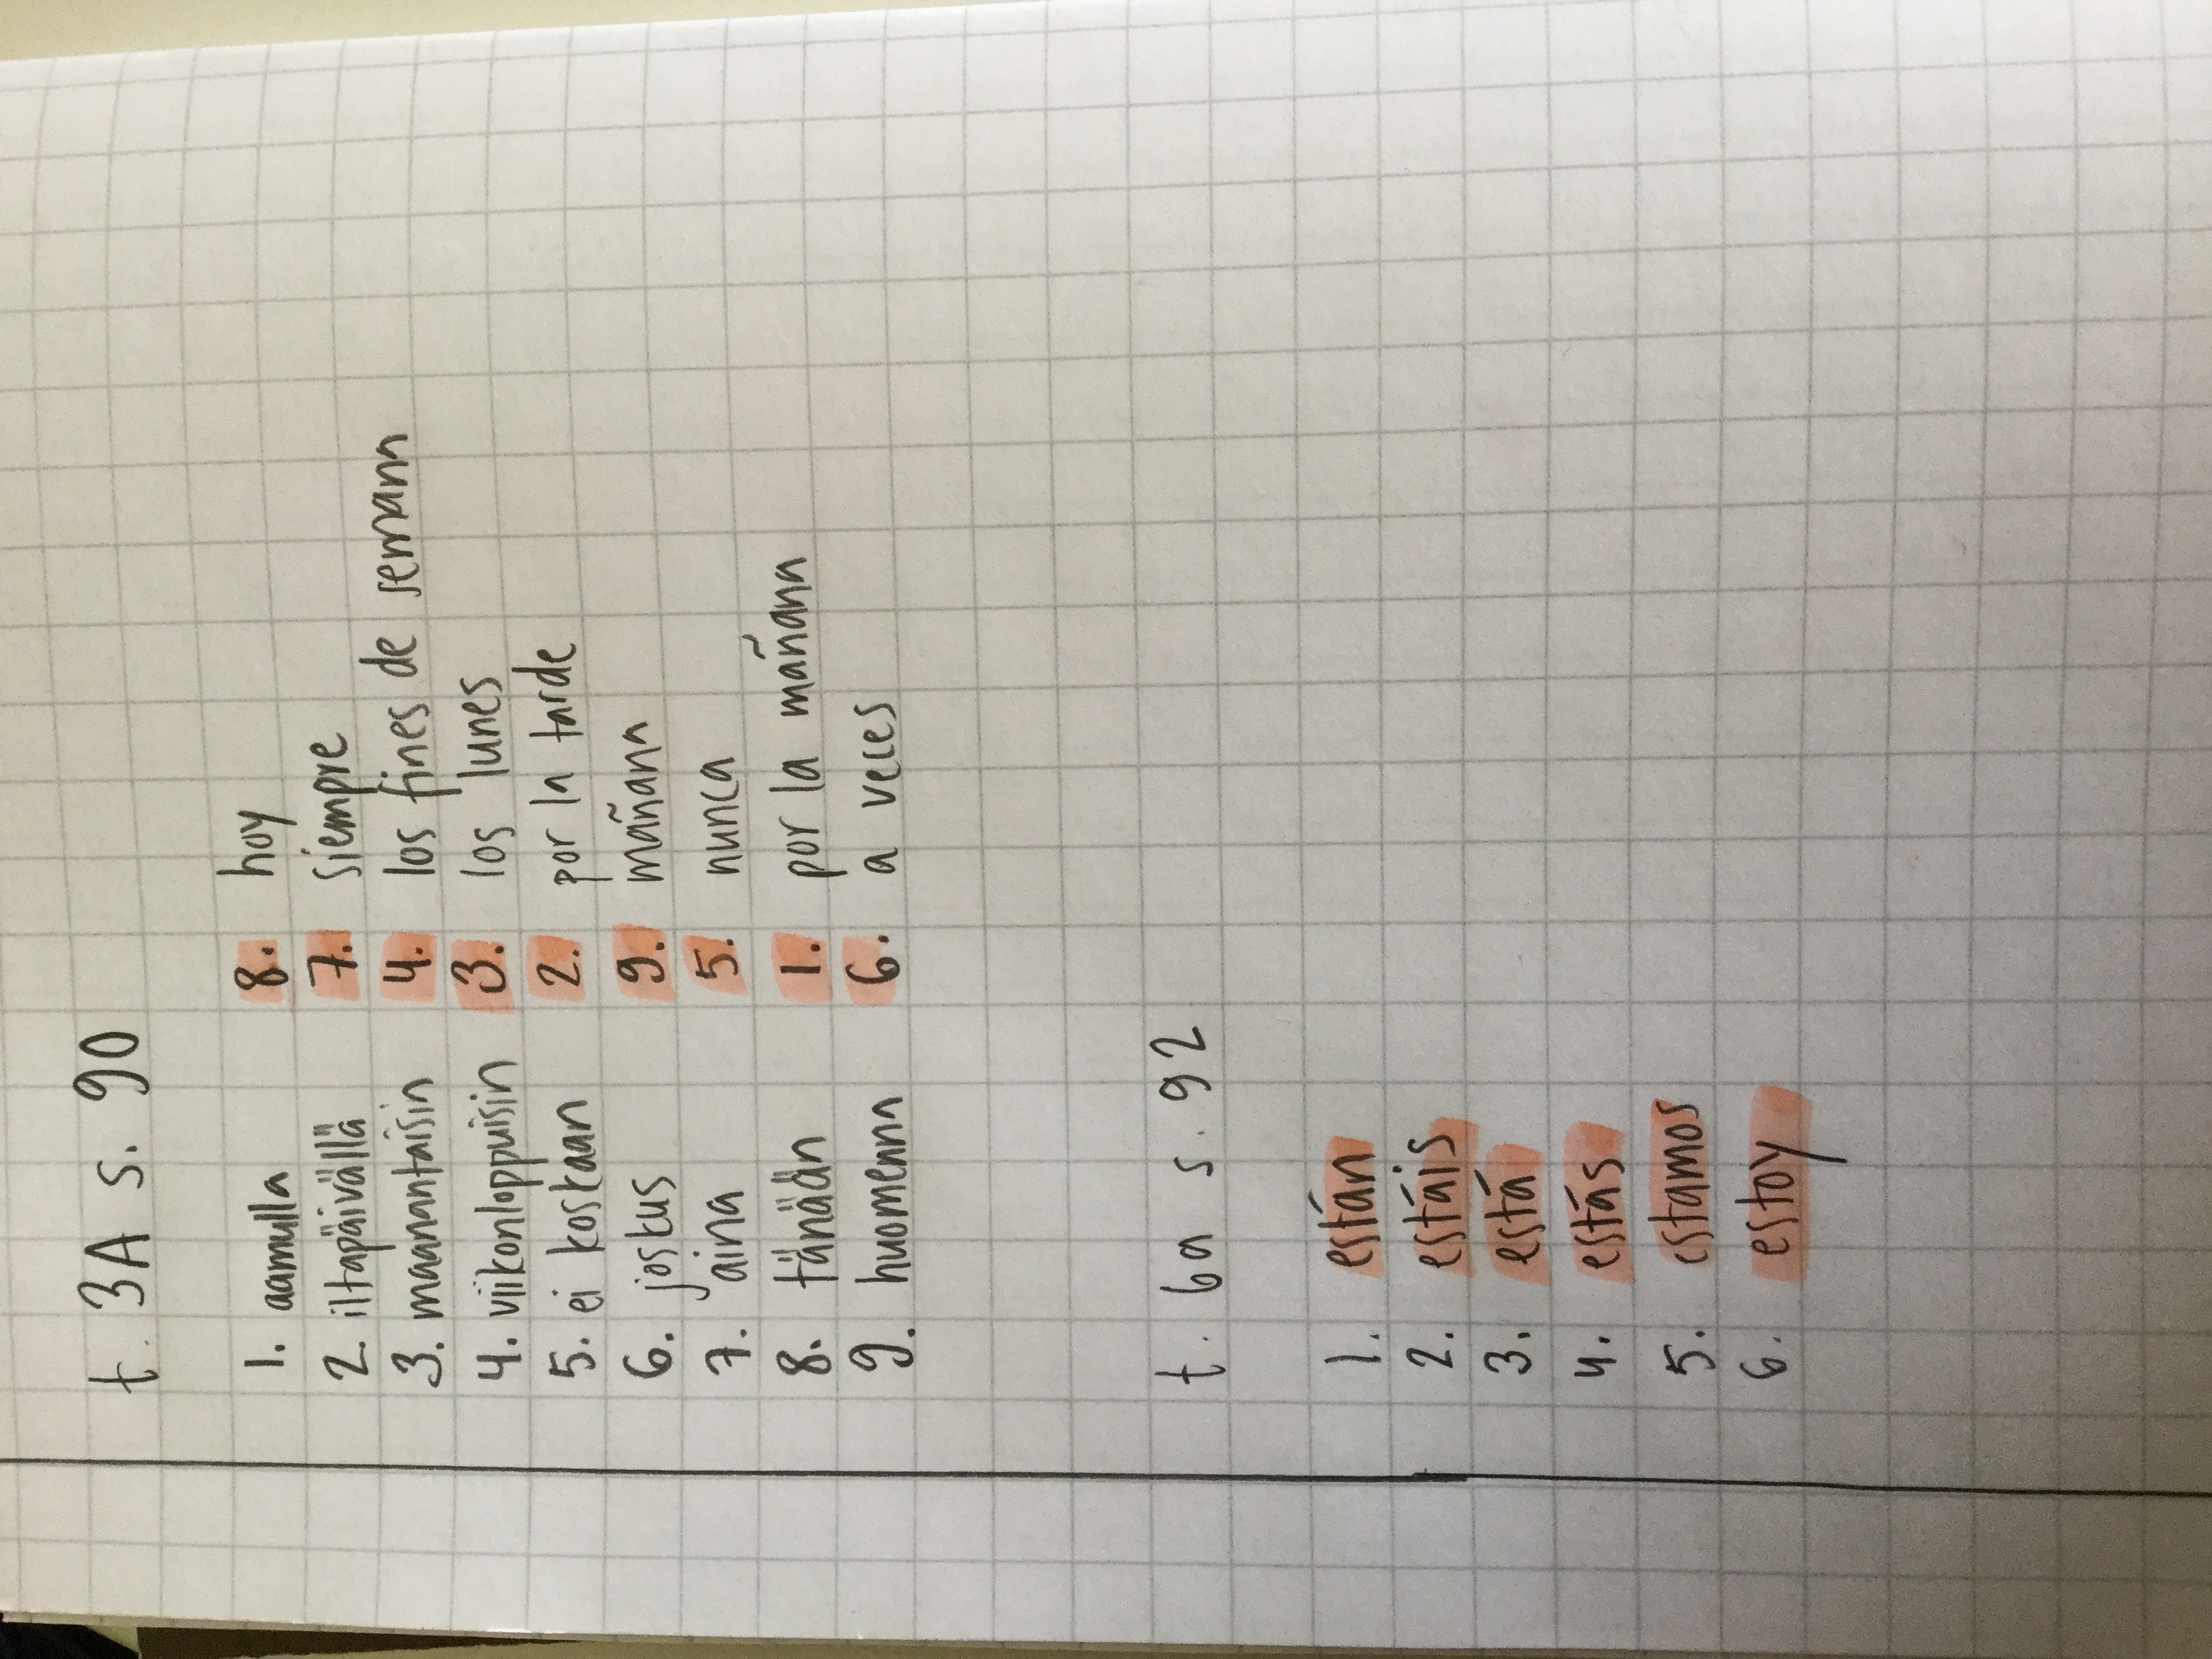 t. 3A s. 90
1. aamulla 8. hoy
2. iltapäivällä 7. siempre
3. maanantaisin 4. los fines de semana
4. viikonloppuisin 3. los lunes
5. ei koskaan 2. por la tarde
6. joskus 9. mañana
7. aina 5. nunca
8. tänään 1. por la mañana
9. huomenna 6. a veces
t. 6a s. 92
1. están
2. estáis
3. está
4. estás
5. estamos
6. estoy